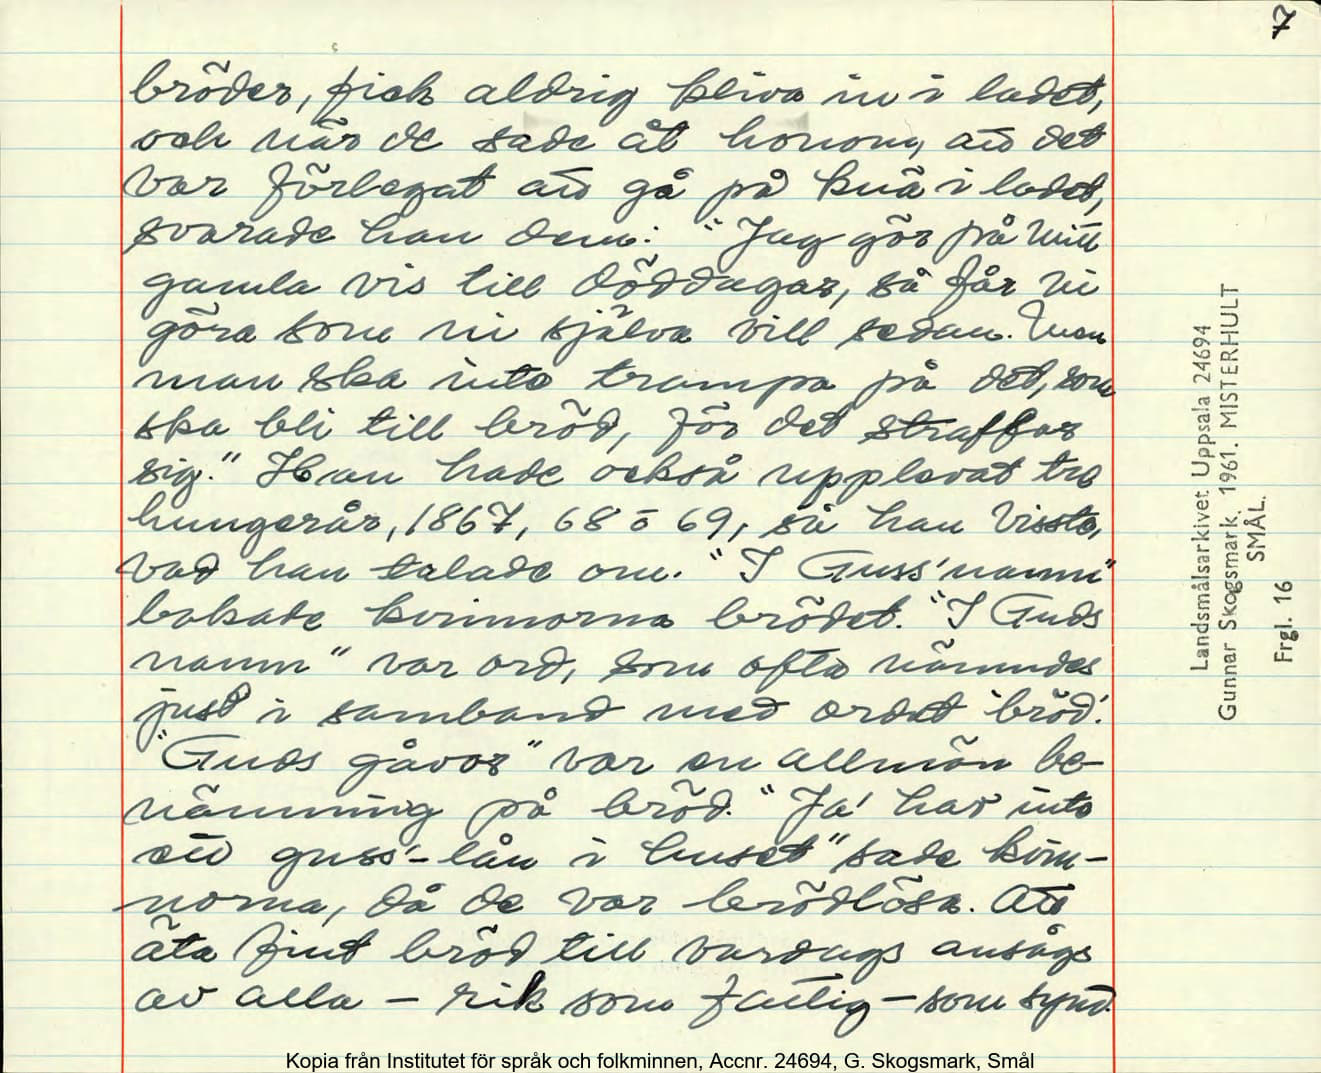 7
bröder, fick aldrig kliva in i ladet,
och när de sade åt honom, att det
var förlegat att gå på knä i ladet,
svarade han dem: "Jag gör på mitt
gamla vis till döddagar, så får ni
göra som ni själva vill sedan. Men
man ska inte trampa på det, som
ska bli till bröd, för det straffar
sig." Han hade också upplevat tre
hungerår, 1867, 68 o 69, så han visste,
vad han talade om. "I Guss' namn"
bakade kvinnorna brödet. "I Guds
namn" var ord, som ofta nämndes
just i samband med ordet 'bröd'.
"Guds gåvor" var en allmän be-
nämning på bröd. "Ja' har inte
ett guss'-lån i huset" sade kvin-
norna, då de var brödlösa. Att
äta fint bröd till vardags ansågs
av alla – rik som fattig – som synd.
Landsmålsarkivet Uppsala 24694
Gunnar Skogsmark. 1961. MISTERHULT
SMÅL.
Frgl. 16
Kopia från Institutet för språk och folkminnen, Accnr. 24694, G. Skogsmark, Smål